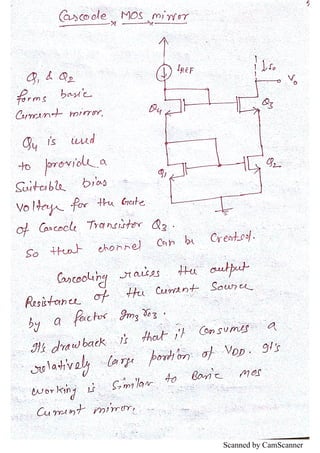 Cascode MOS mirror
IREF
Io
Vo
Q4
Q3
Q1
Q2
Q1 & Q2
forms basic
Current mirror.
Q4 is used
to provide a
Suitable bias
Voltage for the Gate
of Cascode Transistor Q3.
So that channel Can be Created.
Cascoding raises the output
Resistance of the Current Source
by a factor gm3 ro3.
It's drawback is that it Consumes a
relatively large portion of VDD. It's
working is Similar to Basic mos
Current mirror.
Scanned by CamScanner